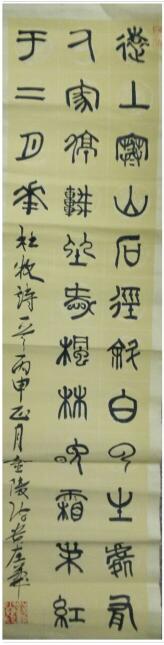 遠上寒山石徑斜白云生處有
人家停車坐愛楓林晚霜葉紅
于二月花 杜牧詩一首丙申正月金陵